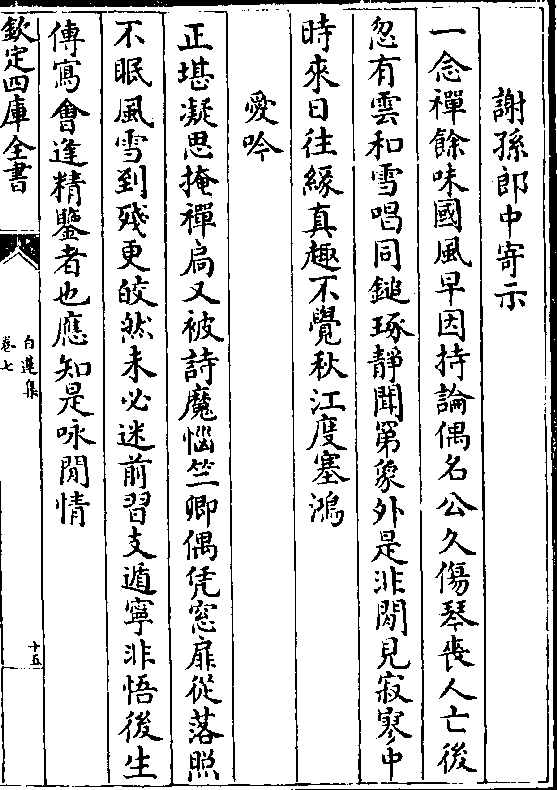 謝孫郎中寄示
一念禪餘味國風早因持論偶名公久傷琴喪人亡後
忽有雲和雪唱同鎚琢静聞罤象外是非閒見寂寥中
時來日往緣真趣不覺秋江度塞鴻
愛吟
正堪凝思掩禪扃又被詩魔惱竺卿偶凭窓扉從落照
不眠風雪到殘更皎然未必迷前習支遁寧非悟後生
傳寫會逢精鑒者也應知是咏閒情
欽定四庫全書
白蓮集
卷七
十五